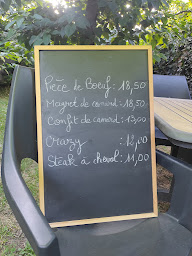 Pièce de Boeuf : 18,50
Magret de canard : 18,50
Confit de canard : 17,00
Crazy : 12,00
Steak à cheval : 11,00